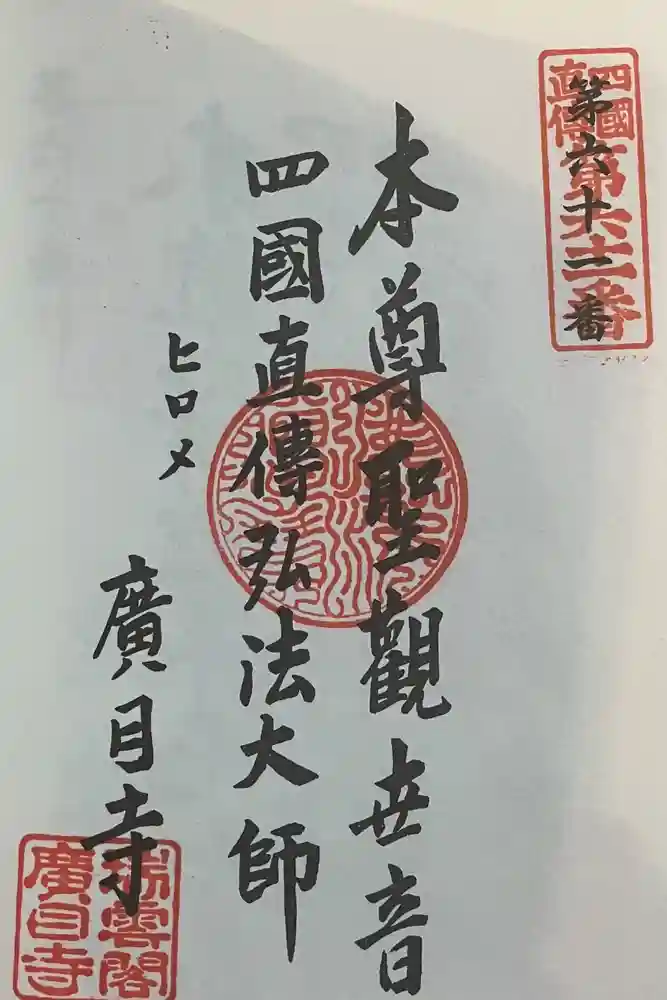 四國
直傳
第六十二番
第六十二番
本尊聖觀世音
四國直傳弘法大師
ヒロメ
廣目寺
瑞雲閣
廣目寺